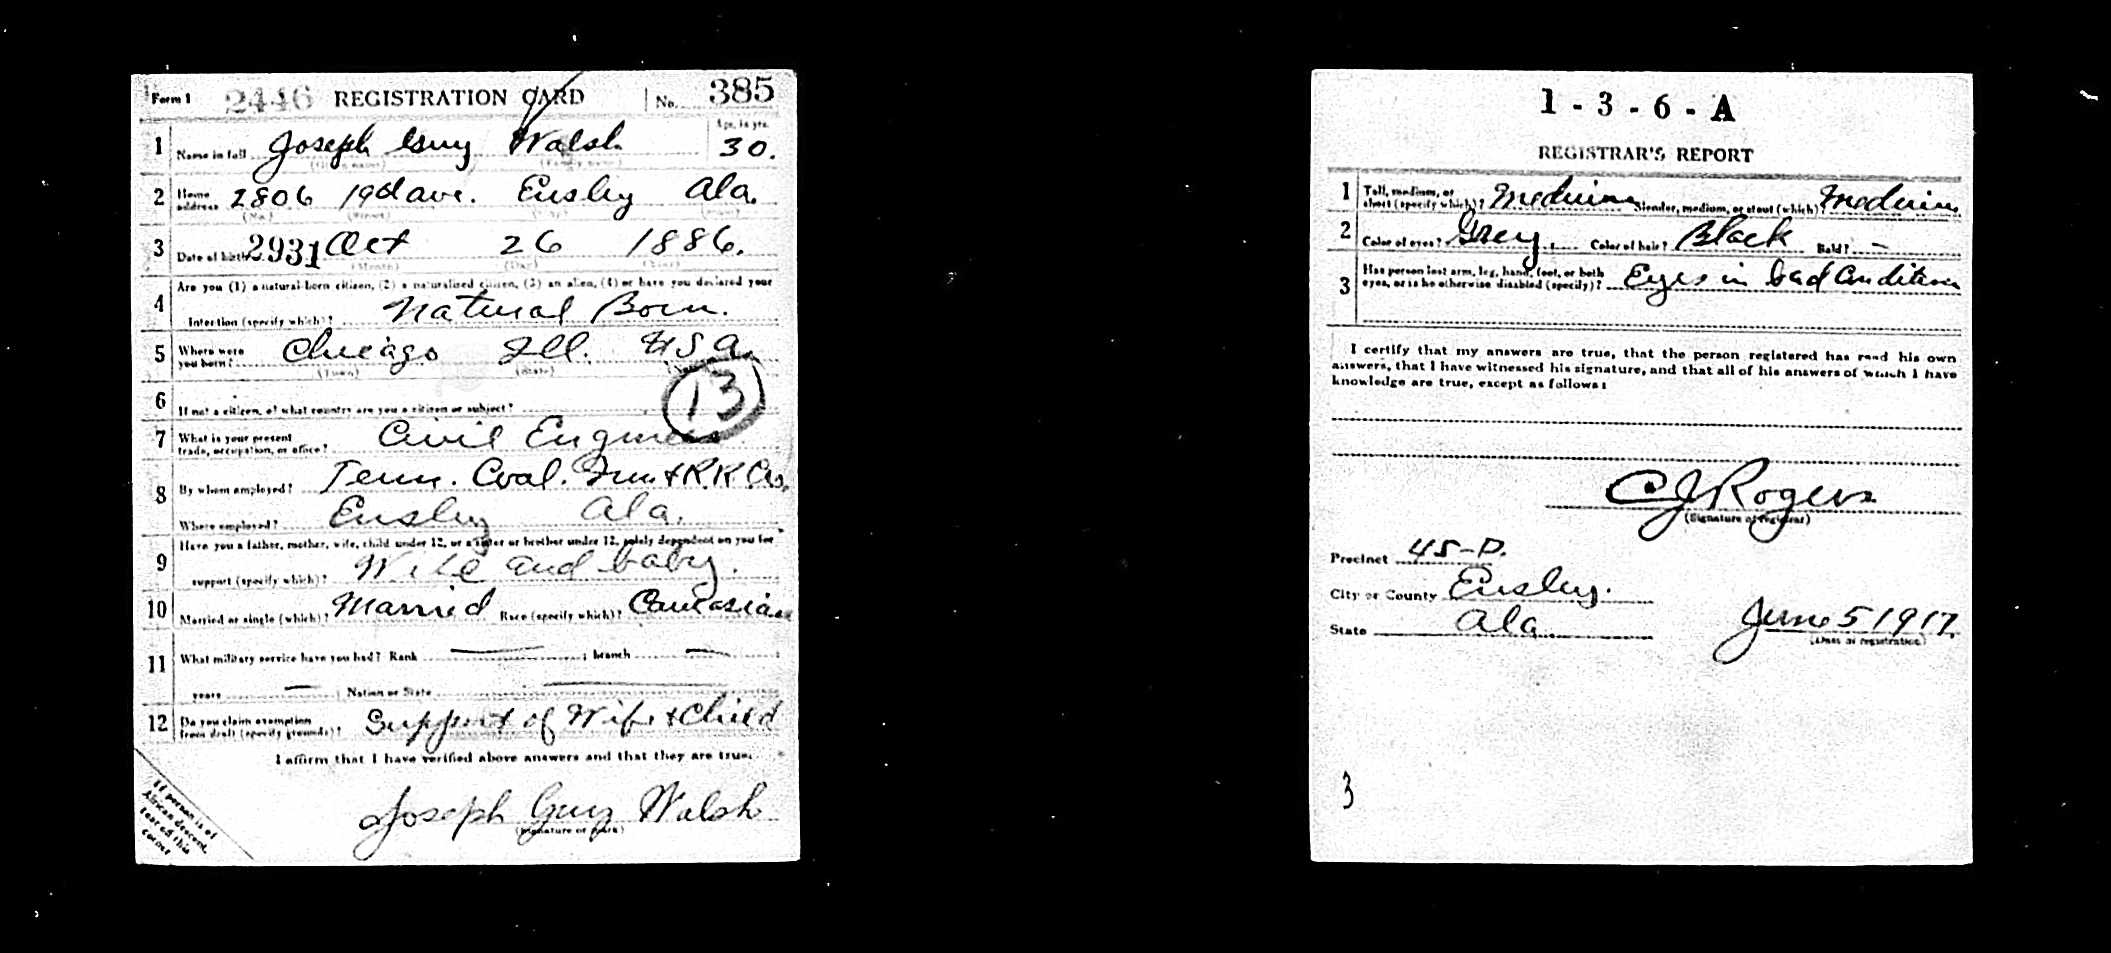 Form 1 2446 REGISTRATION CARD No. 385
1 Name in full Joseph Guy Walsh Age, in yrs. 30.
(Given name) (Family name)
2 Home address 2806 19th ave. Ensley Ala.
(No.) (Street) (City) (State)
3 Date of birth 2931 Oct 26 1886.
(Month) (Day) (Year)
Are you (1) a natural-born citizen, (2) a naturalized citizen, (3) an alien, (4) or have you declared your
4 intention (specify which)? Natural Born.
5 Where were you born? Chicago Ill. USA.
(Town) (State)
13
6 If not a citizen, of what country are you a citizen or subject?
7 What is your present trade, occupation, or office? Civil Engineer
8 By whom employed? Tenn. Coal. Iron & R.R. Co.
Where employed? Ensley Ala.
Have you a father, mother, wife, child under 12, or a sister or brother under 12, solely dependent on you for
9 support (specify which)? Wife and baby.
10 Married or single (which)? Married Race (specify which)? Caucasian
11 What military service have you had? Rank — ; branch — ;
years — ; Nation or State —
12 Do you claim exemption from draft (specify grounds)? Support of Wife & Child
I affirm that I have verified above answers and that they are true.
Joseph Guy Walsh
(Signature or mark)
If person is of
African descent,
tear off this
corner
1 - 3 - 6 - A
REGISTRAR'S REPORT
1 Tall, medium, or short (specify which)? Medium Slender, medium, or stout (which)? Medium
2 Color of eyes? Grey. Color of hair? Black Bald? —
3 Has person lost arm, leg, hand, foot, or both eyes, or is he otherwise disabled (specify)? Eyes in bad Condition
I certify that my answers are true, that the person registered has read his own
answers, that I have witnessed his signature, and that all of his answers of which I have
knowledge are true, except as follows:
C J Rogers
(Signature of registrar)
Precinct 45-P.
City or County Ensley.
State Ala. June 5 1917.
(Date of registration)
3